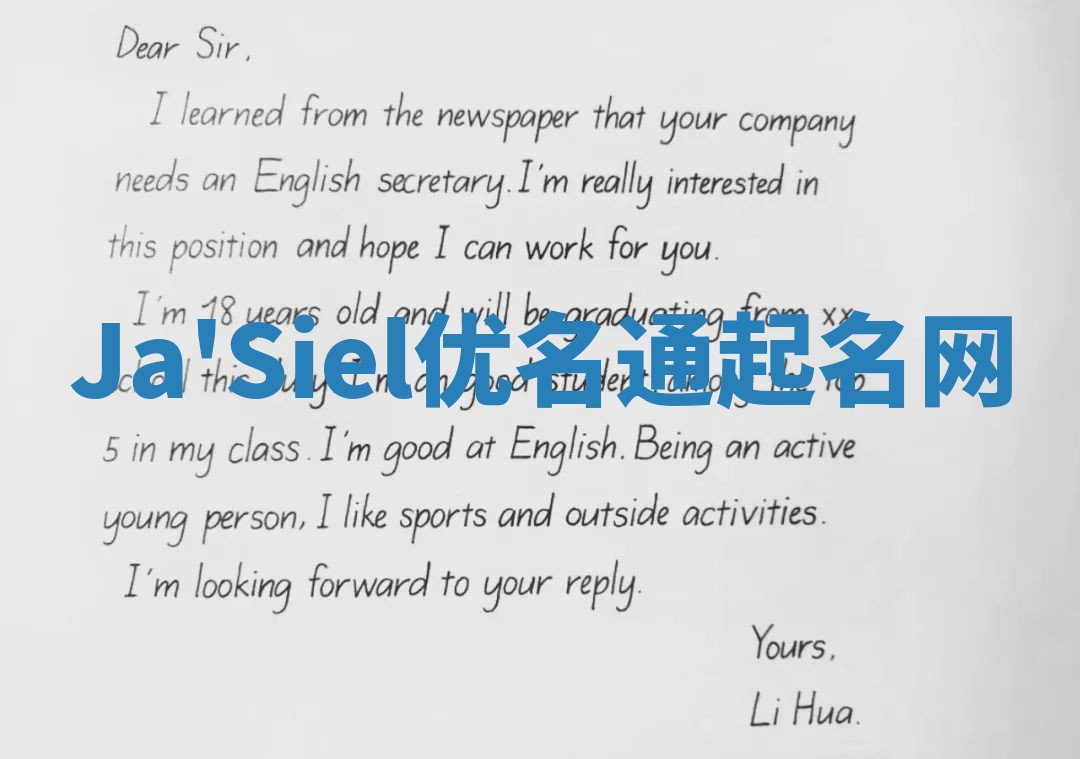 Dear Sir,
I learned from the newspaper that your company
needs an English secretary. I'm really interested in
this position and hope I can work for you.
I'm 18 years old and will be graduating from xx
Ja'Siel优名通起名网
school this July. I'm an good student among the top
5 in my class. I'm good at English. Being an active
young person, I like sports and outside activities.
I'm looking forward to your reply.
Yours,
Li Hua.